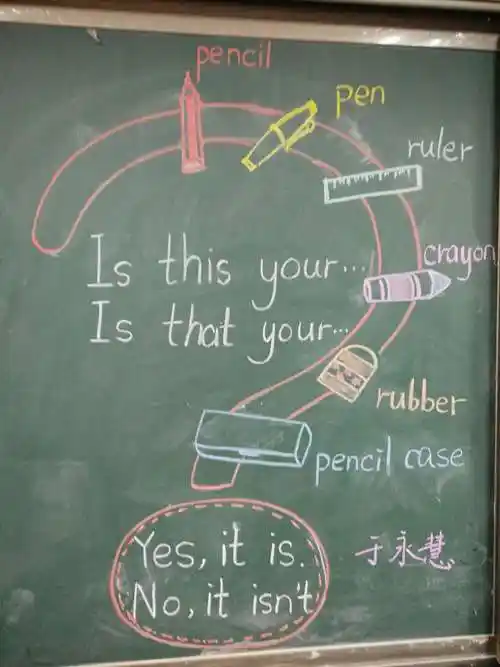 pencil
pen
ruler
crayon
Is this your...
Is that your...
rubber
pencil case
Yes, it is.
No, it isn't
于永慧